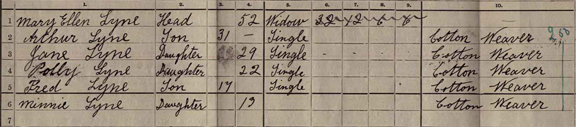 1. 2. 3. 4. 5. 6. 7. 8. 9. 10.
1 Mary Ellen Lyne Head 52 Widow
2 Arthur Lyne Son 31 - Single Cotton Weaver
3 Jane Lyne Daughter 29 Single Cotton Weaver
4 Polly Lyne Daughter 22 Single Cotton Weaver
5 Fred Lyne Son 17 Single Cotton Weaver
6 Minnie Lyne Daughter 13 Cotton Weaver
7